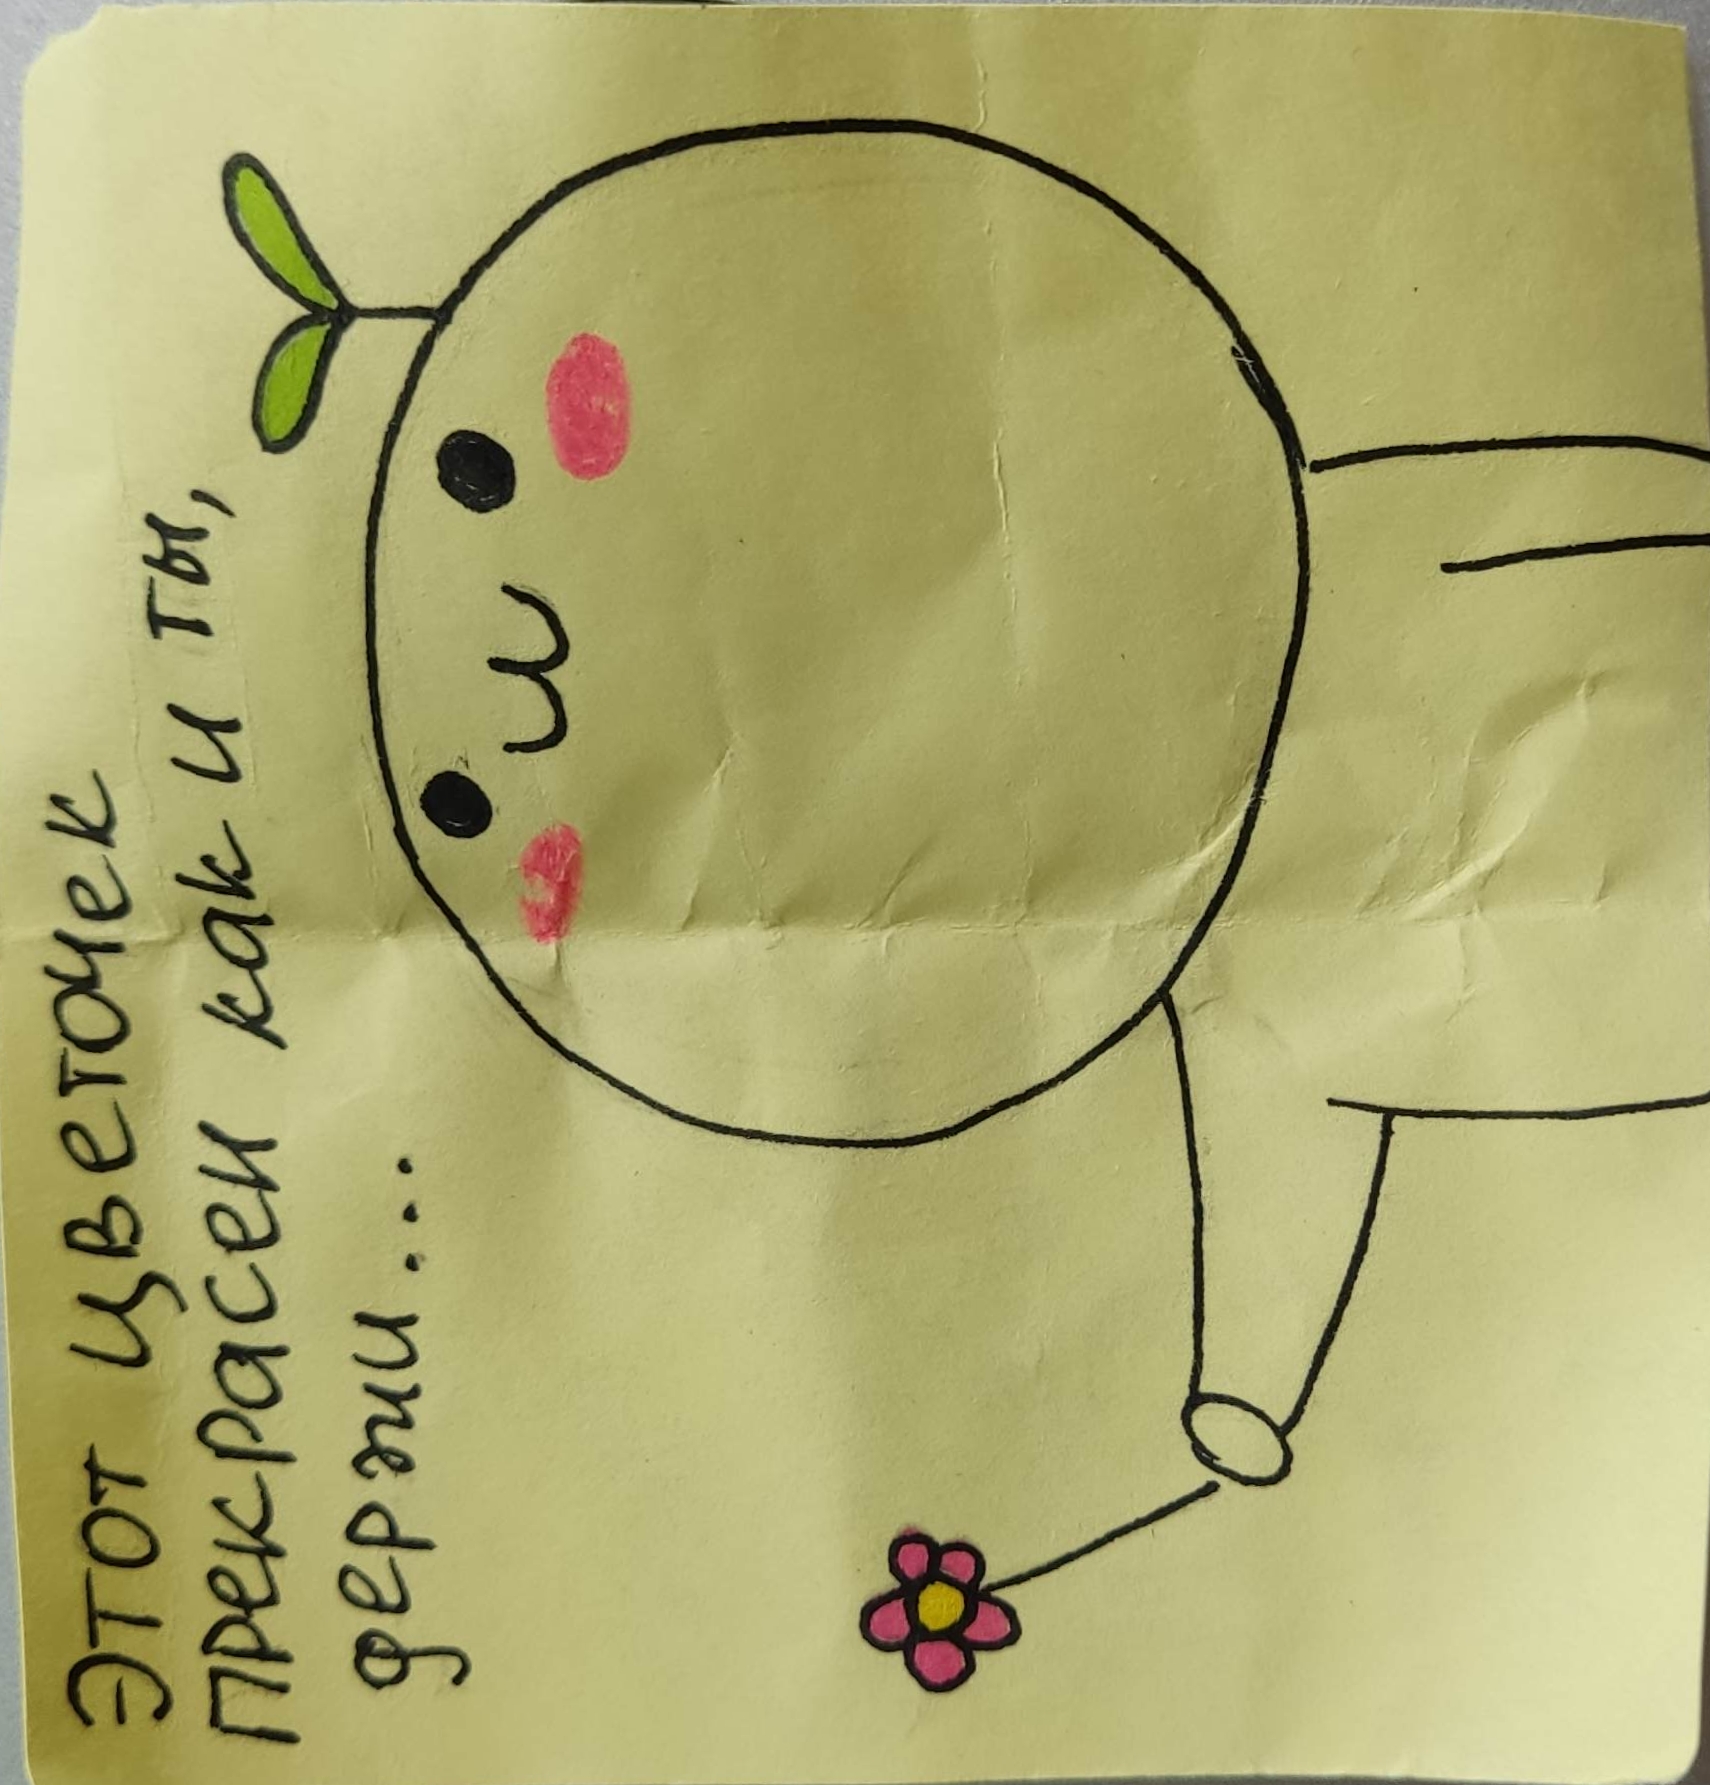 Этот цветочек
прекрасен как и ты,
держи...